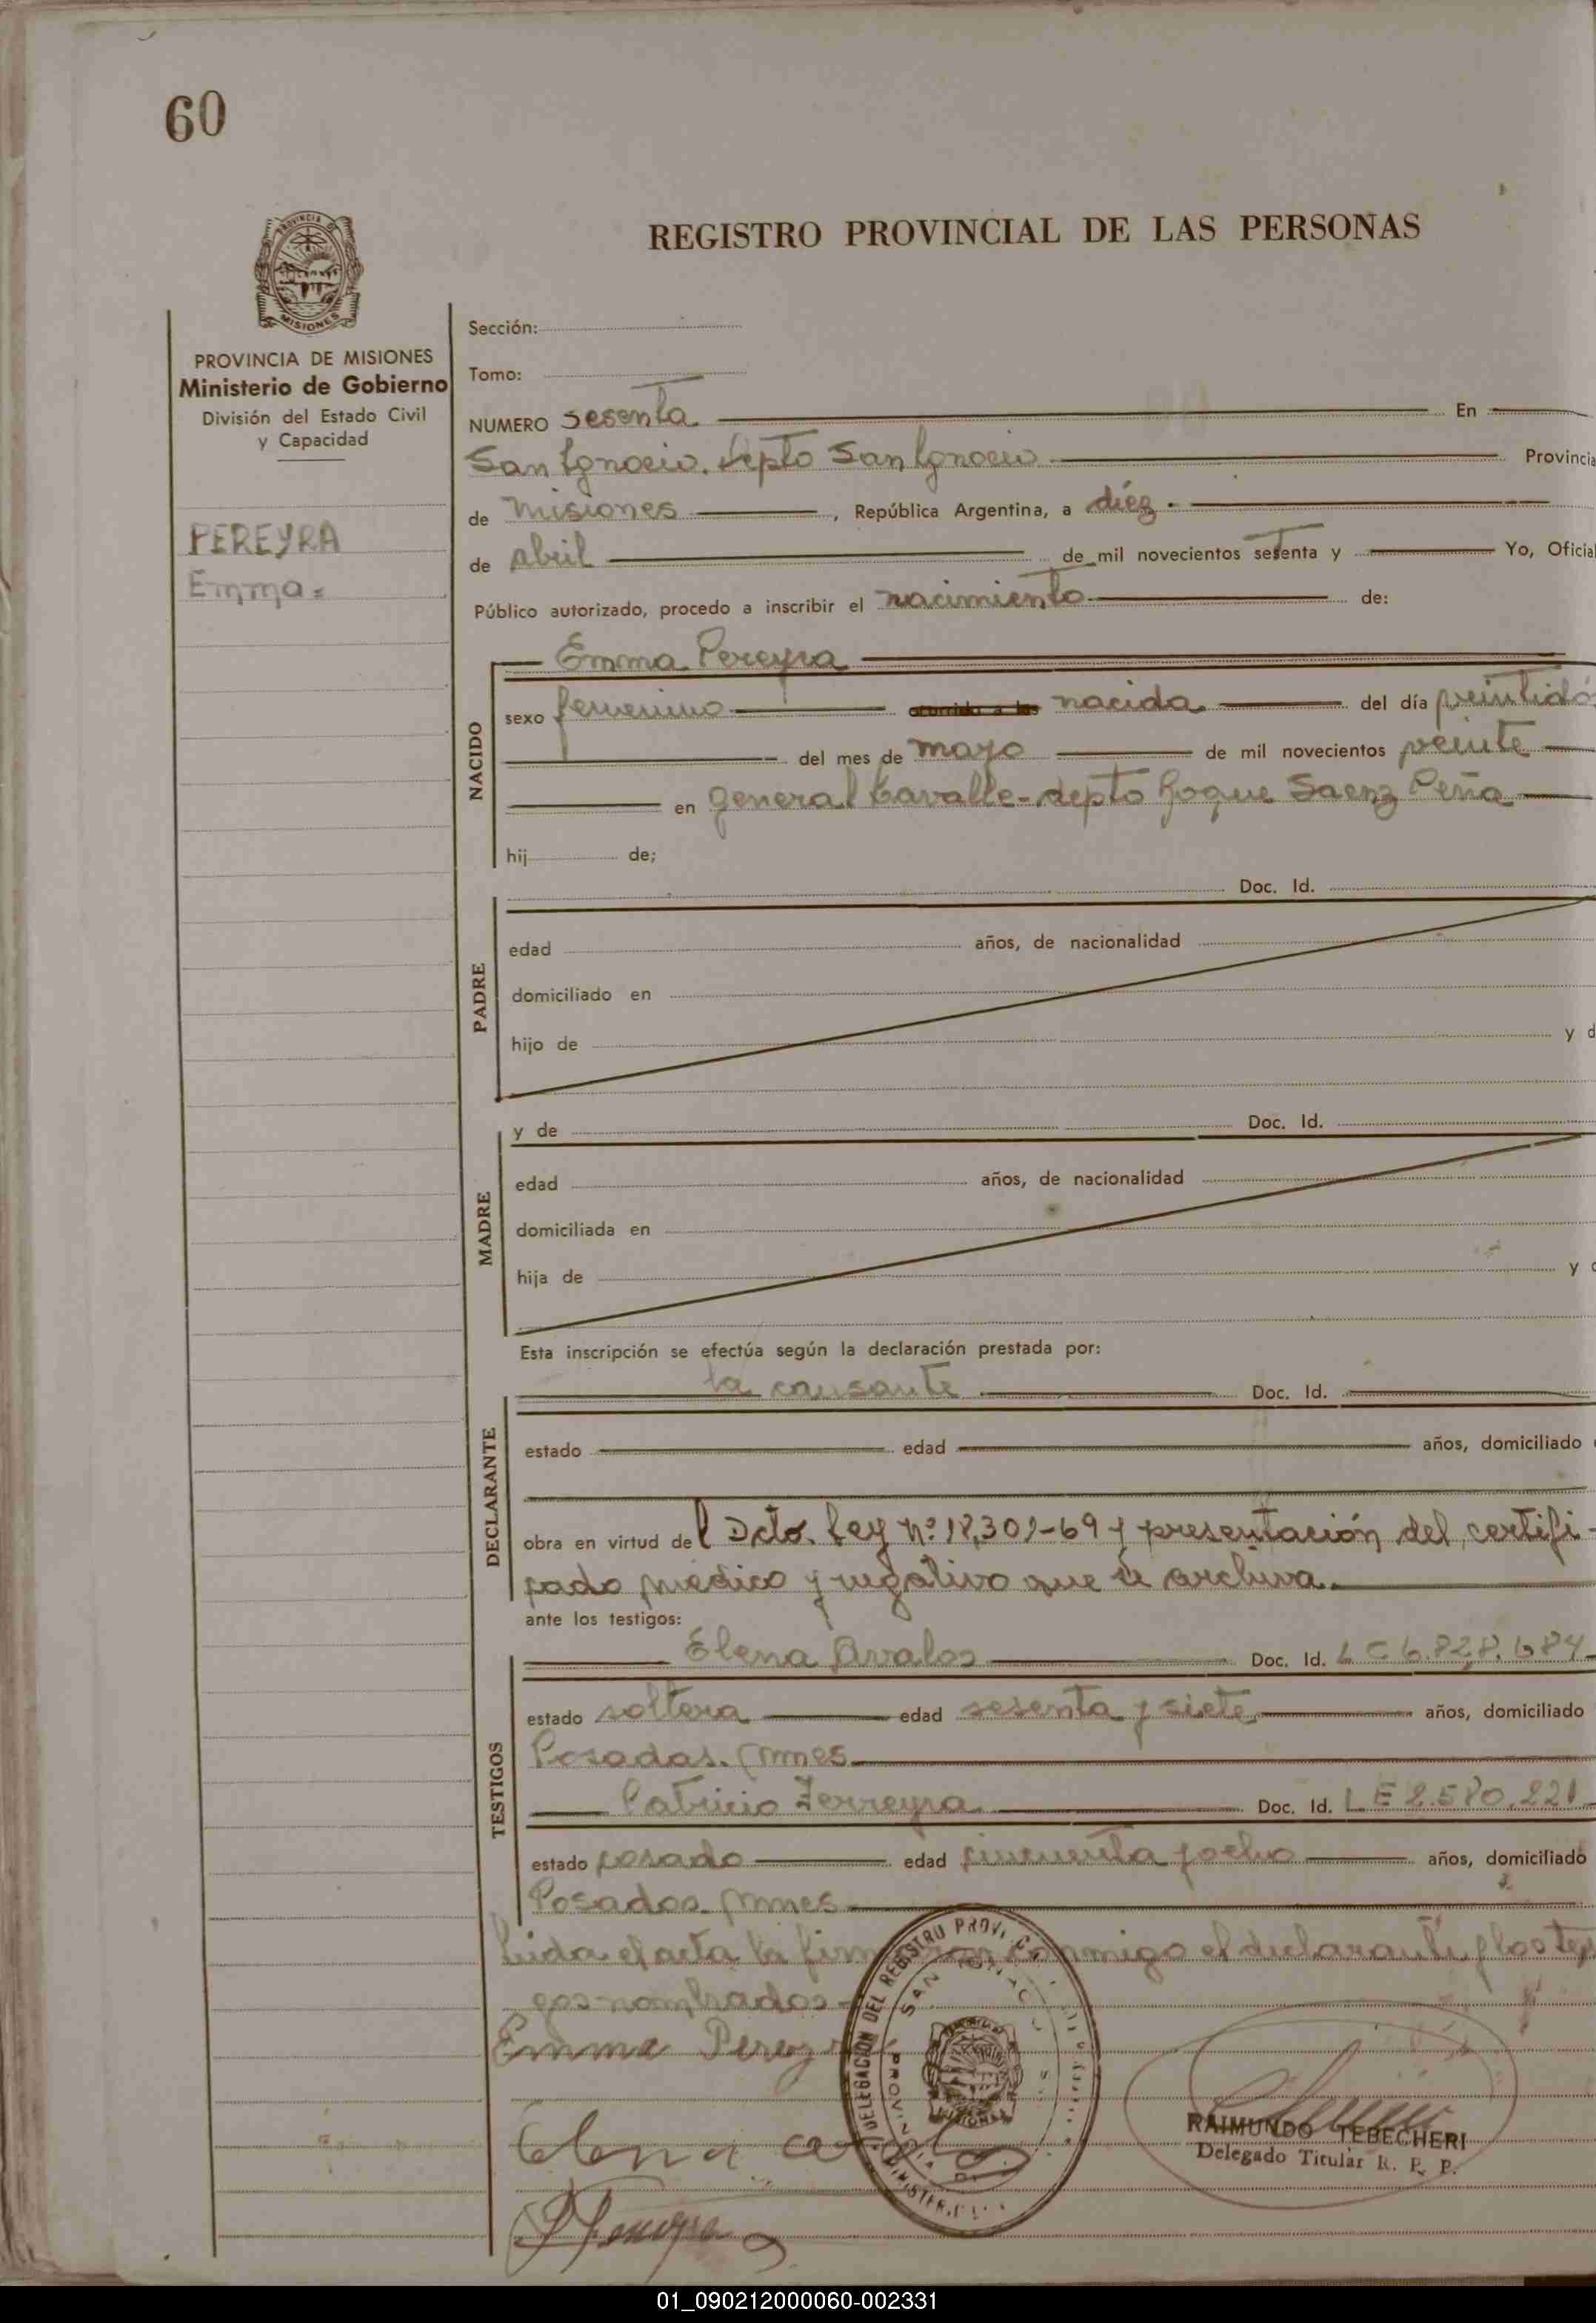 60
PROVINCIA DE
MISIONES
REGISTRO PROVINCIAL DE LAS PERSONAS
PROVINCIA DE MISIONES
Ministerio de Gobierno
División del Estado Civil
y Capacidad
PEREYRA
Emma =
Sección:
Tomo:
NUMERO sesenta En
San Ignacio. depto San Ignacio Provincia
de Misiones , República Argentina, a diéz
de abril de mil novecientos setenta y Yo, Oficial
Público autorizado, procedo a inscribir el nacimiento de:
Emma Pereyra
NACIDO
sexo femenino nacida del día veintidós
del mes de mayo de mil novecientos veinte
en General Lavalle - depto Roque Saenz Peña
hij de;
PADRE
Doc. Id.
edad años, de nacionalidad
domiciliado en
hijo de y d
MADRE
y de Doc. Id.
edad años, de nacionalidad
domiciliada en
hija de y d
Esta inscripción se efectúa según la declaración prestada por:
DECLARANTE
la causante Doc. Id.
estado edad años, domiciliado
obra en virtud del Dcto. Ley Nº 18.301-69 y presentación del certifi-
cado médico y negativo que se archiva.
ante los testigos:
TESTIGOS
Elena Avalos Doc. Id. LC 6.828.684
estado soltera edad sesenta y siete años, domiciliado
Posadas. Mnes
Patricio Ferreyra Doc. Id. LE 2.580.221
estado casado edad cincuenta y ocho años, domiciliado
Posadas. Mnes
Leida el acta la firman conmigo el declarante y los testi
gos nombrados
Emma Pereyra
DELEGACION DEL REGISTRO PROVINCIAL
SAN IGNACIO
PROVINCIA DE
MISIONES
Elena Avalos
RAIMUNDO TEBECHERI
Delegado Titular R. P. P.
01_090212000060-002331